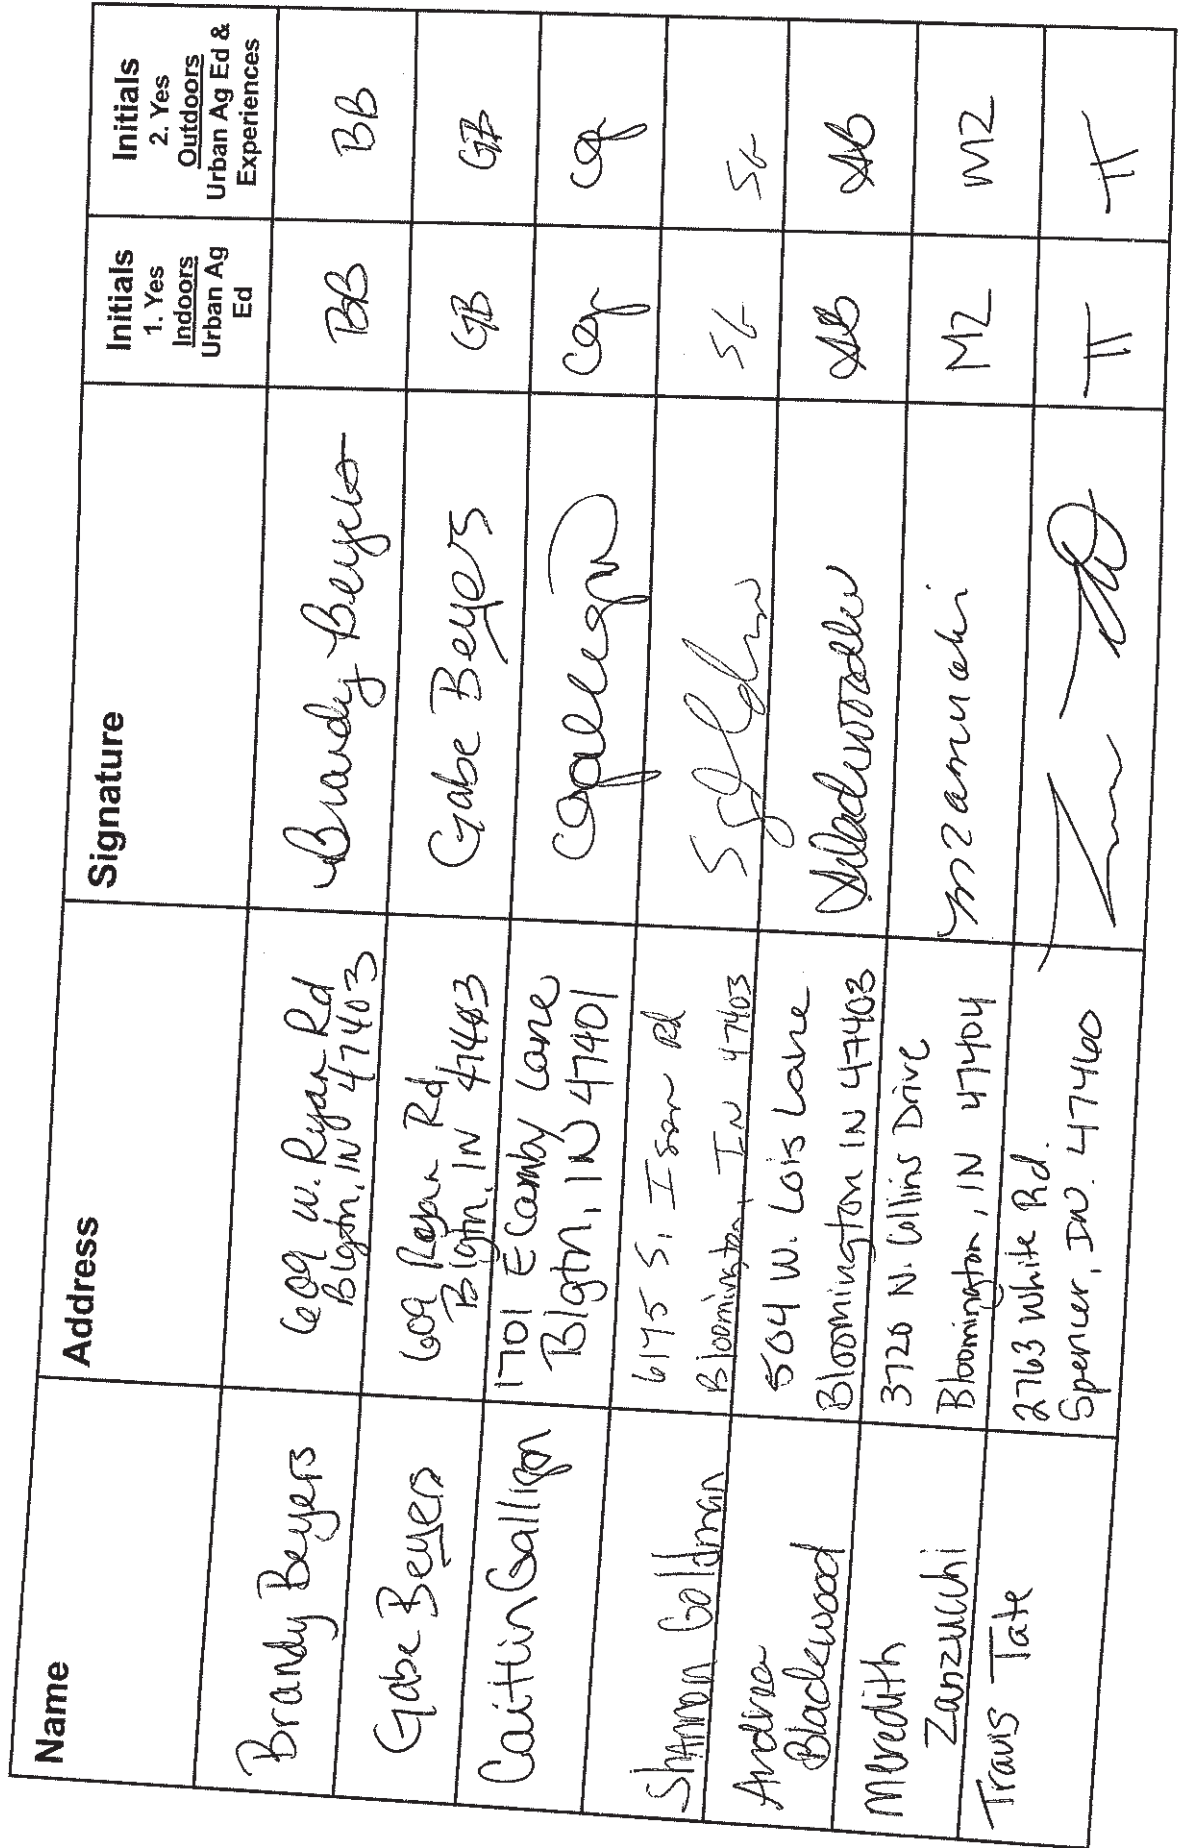 Name
Address
Signature
Initials
1. Yes
Indoors
Urban Ag
Ed
Initials
2. Yes
Outdoors
Urban Ag Ed &
Experiences
Brandy Beyers
609 W. Ryan Rd
Blgtn, IN 47403
Brandy Beyers
BB
BB
Gabe Beyers
609 Ryan Rd
Blgtn, IN 47403
Gabe Beyers
GB
GB
Caitlin Galligan
1701 E Camby Lane
Blgtn, IN 47401
CGalligan
CG
CG
Shannon Goldman
6175 S, Ison Rd
Bloomington, IN 47403
SGoldman
SG
SG
Andrea
Blackwood
504 W. Lois Lane
Bloomington IN 47403
AB
AB
Meredith
Zanzucchi
3720 N. Collins Drive
Bloomington, IN 47404
mzanzucchi
MZ
MZ
Travis Tate
2763 White Rd.
Spencer, IN. 47460
TT
TT